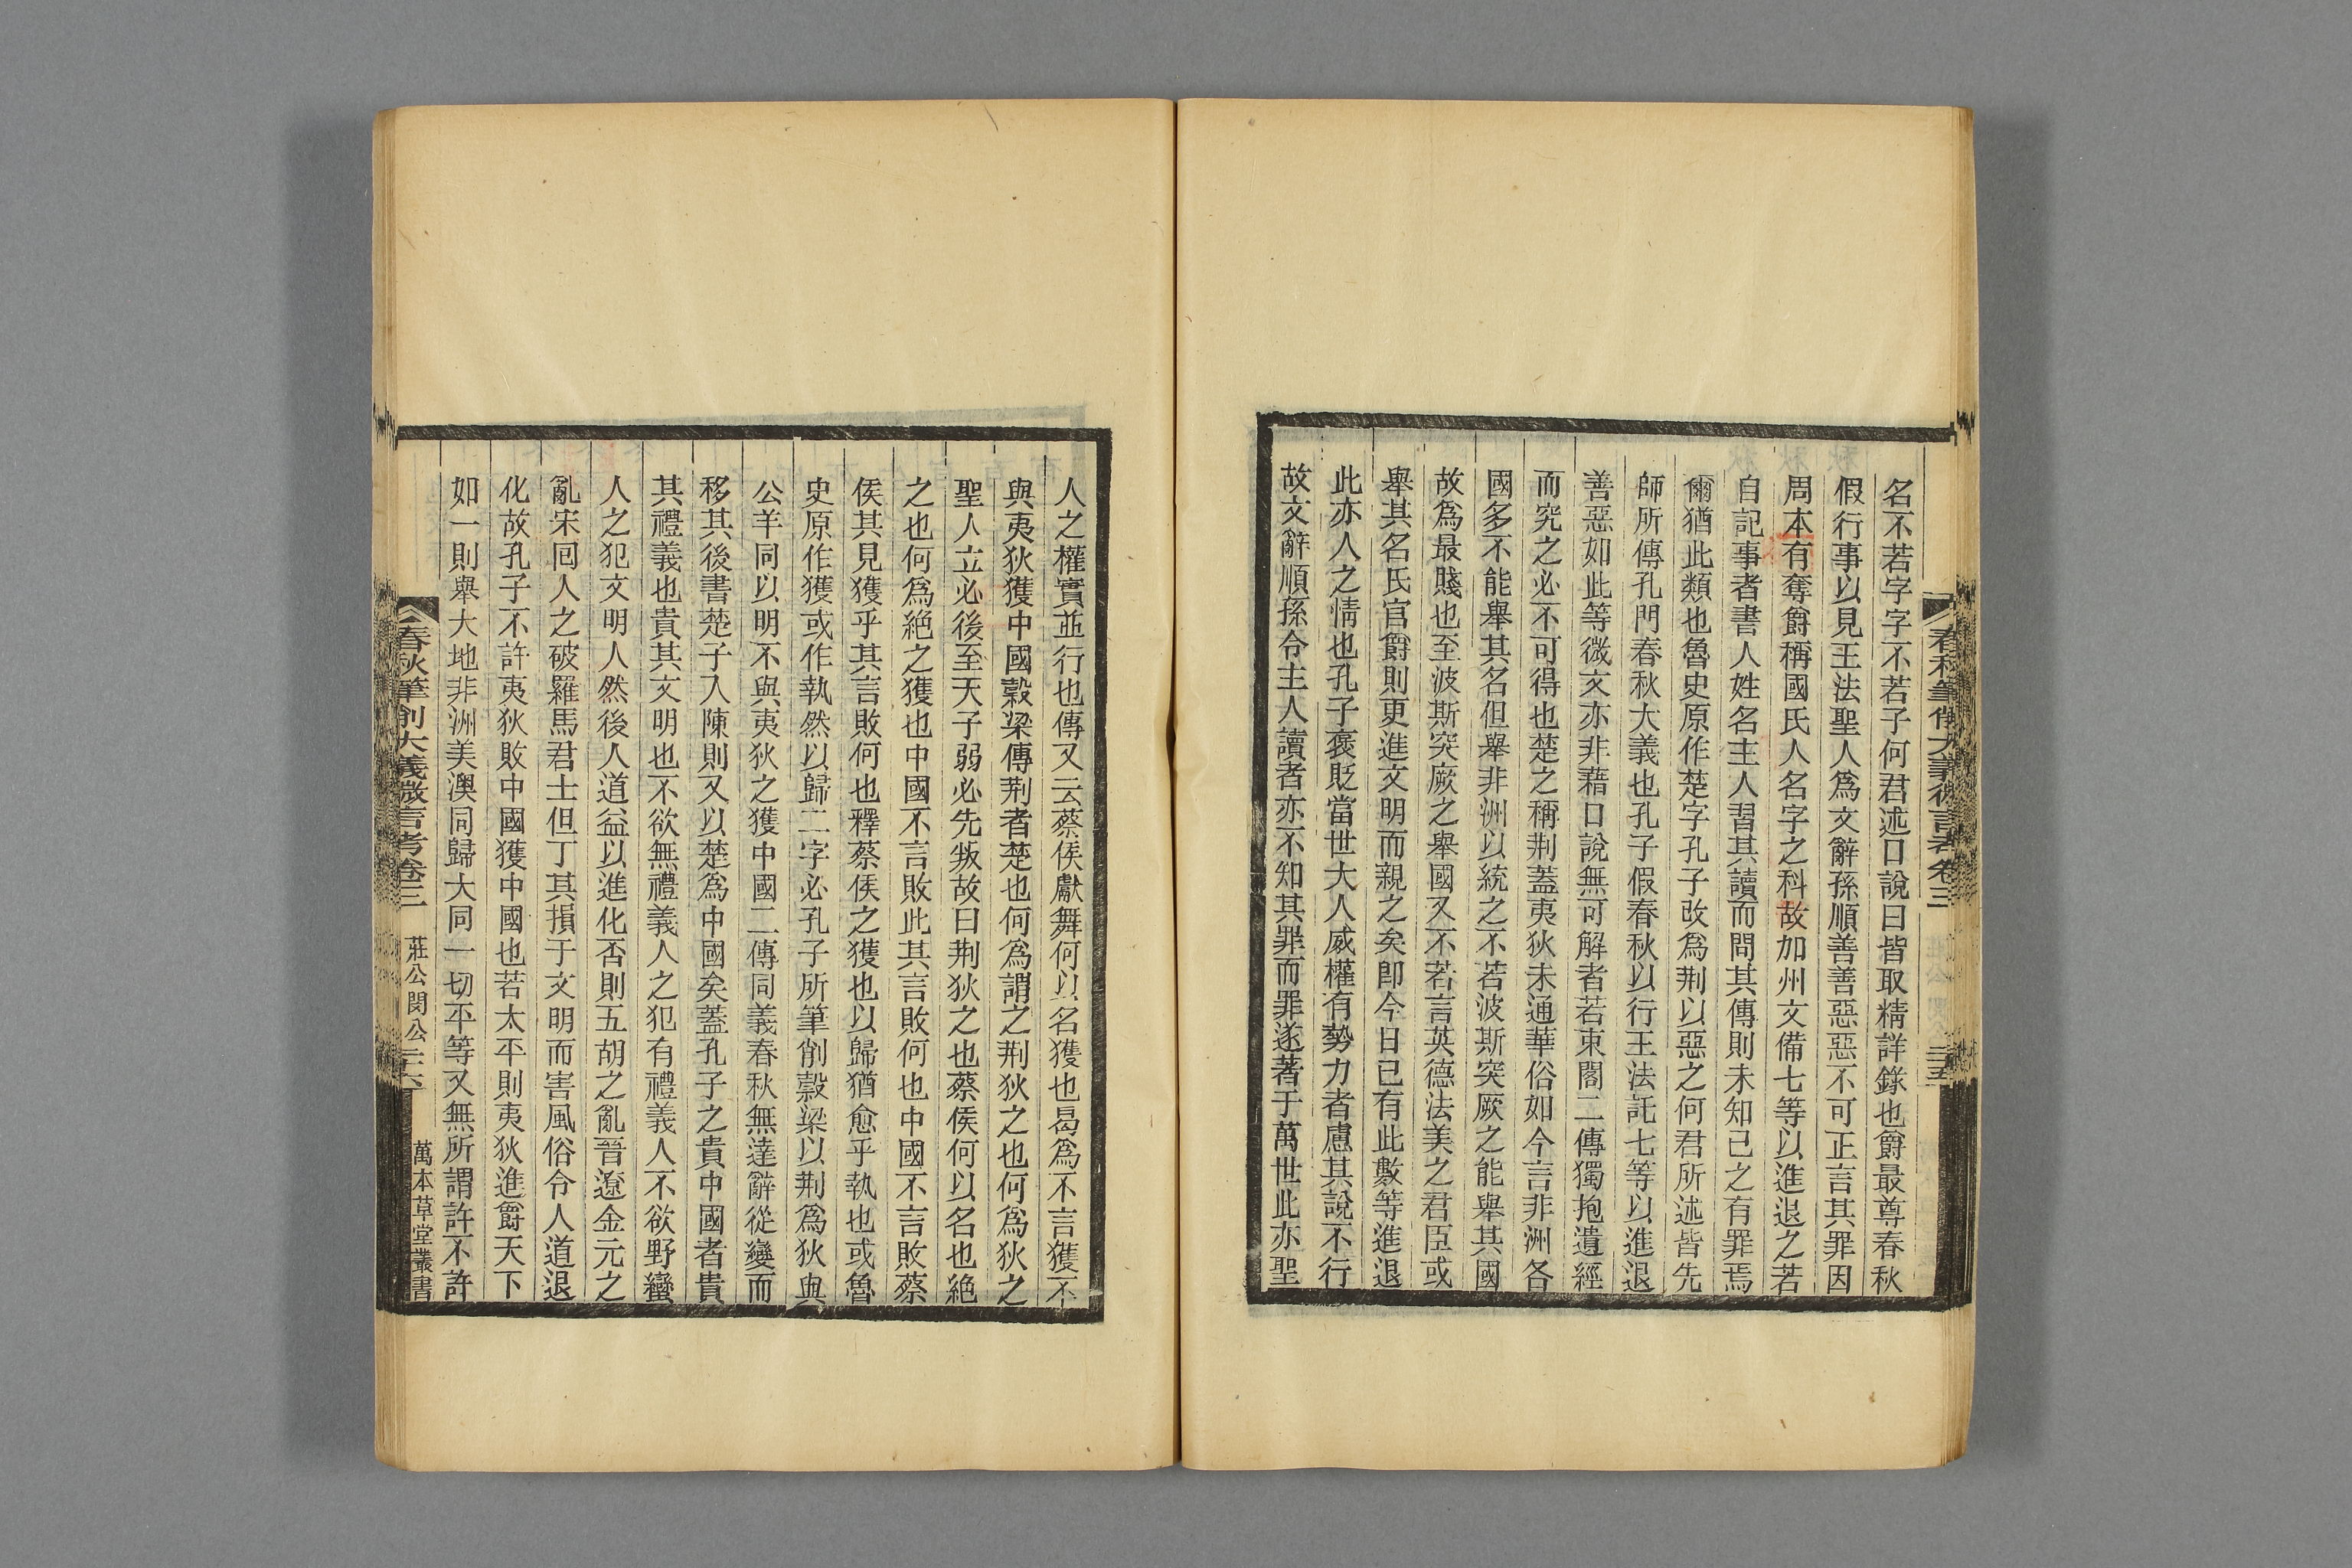 春秋筆削大義微言考卷三
二十五
名不若字字不若子何君述口說曰皆取精詳錄也爵最尊春秋
假行事以見王法聖人爲文辭孫順善善惡惡不可正言其罪因
周本有奪爵稱國氏人名字之科故加州文備七等以進退之若
自記事者書人姓名主人習其讀而問其傳則未知己之有罪焉
爾猶此類也魯史原作楚字孔子改爲荆以惡之何君所述皆先
師所傳孔門春秋大義也孔子假春秋以行王法託七等以進退
善惡如此等微文亦非藉口說無可解者若束閣二傳獨抱遺經
而究之必不可得也楚之稱荆蓋夷狄未通華俗如今言非洲各
國多不能舉其名但舉非洲以統之不若波斯突厥之能舉其國
故爲最賤也至波斯突厥之舉國又不若言英德法美之君臣或
舉其名氏官爵則更進文明而親之矣卽今日已有此數等進退
此亦人之情也孔子褒貶當世大人威權有勢力者慮其說不行
故文辭順孫令主人讀者亦不知其罪而罪遂著于萬世此亦聖
人之權實並行也傳又云蔡侯獻舞何以名獲也曷爲不言獲不
與夷狄獲中國榖梁傳荆者楚也何爲謂之荆狄之也何爲狄之
聖人立必後至天子弱必先叛故曰荆狄之也蔡侯何以名也絕
之也何爲絕之獲也中國不言敗此其言敗何也中國不言敗蔡
侯其見獲乎其言敗何也釋蔡侯之獲也以歸猶愈乎執也或魯
史原作獲或作執然以歸二字必孔子所筆削榖梁以荆爲狄與
公羊同以明不與夷狄之獲中國二傳同義春秋無達辭從變而
移其後書楚子入陳則又以楚爲中國矣蓋孔子之貴中國者貴
其禮義也貴其文明也不欲無禮義人之犯有禮義人不欲野蠻
人之犯文明人然後人道益以進化否則五胡之亂晉遼金元之
亂宋囘人之破羅馬君士但丁其損于文明而害風俗令人道退
化故孔子不許夷狄敗中國獲中國也若太平則夷狄進爵天下
如一則舉大地非洲美澳同歸大同一切平等又無所謂許不許
春秋筆削大義微言考卷三
莊公閔公
二十六
萬木草堂叢書